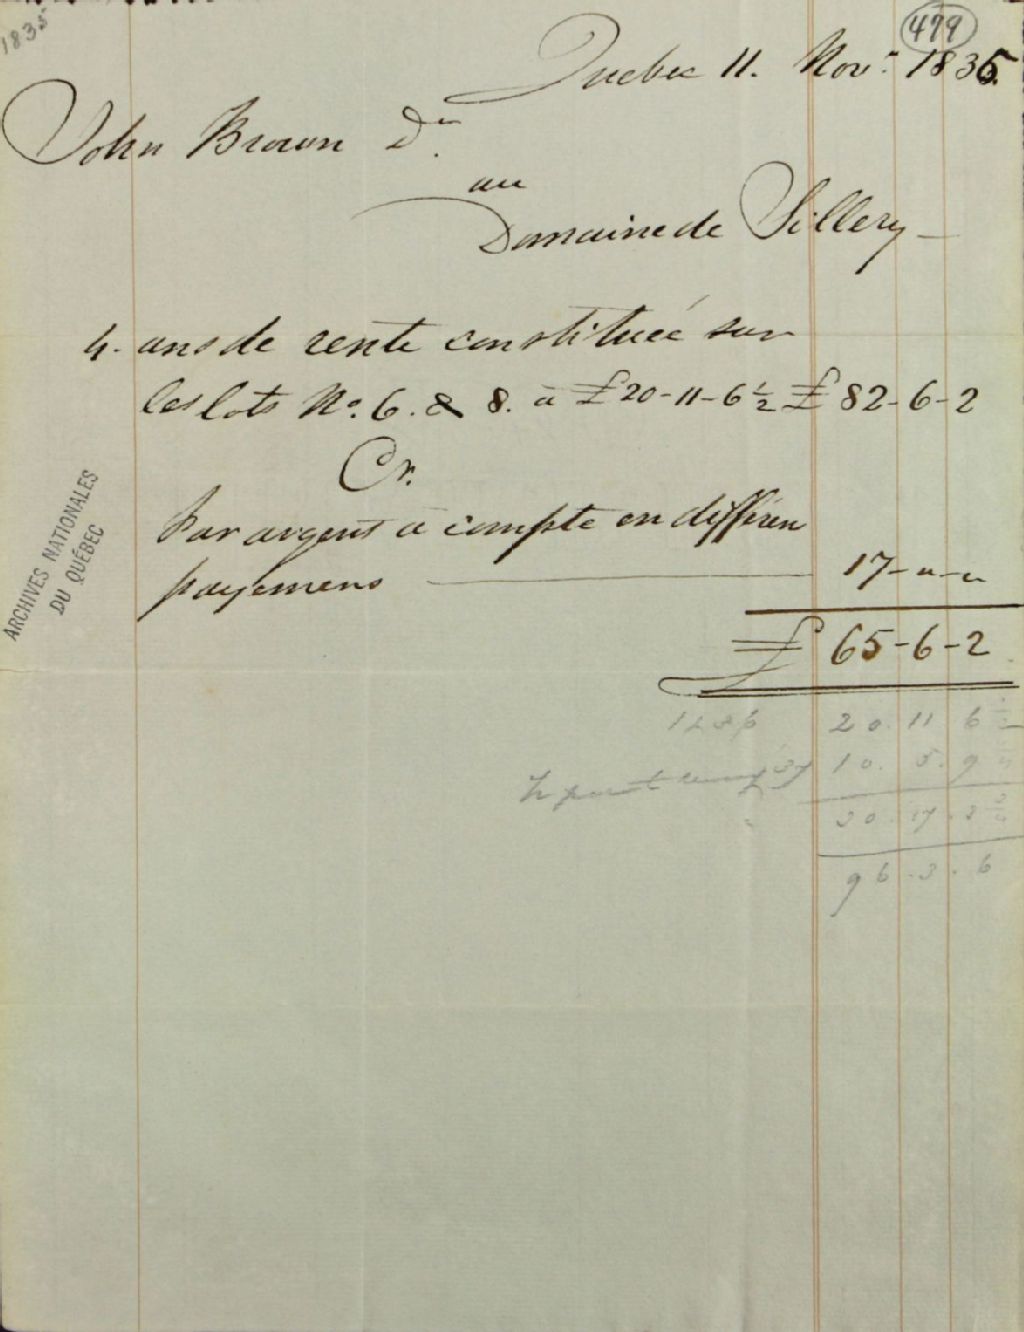 1835
479
Quebec 11. Nov.r 1835
John Brown Dr.
au
Domaine de Sillery
4. ans de rente constituée sur
les lots No. 6. & 8. à £20-11-6½ £82-6-2
Cr.
Par argent à compte en differen
payemens 17-"-"
£65-6-2
ARCHIVES NATIONALES
DU QUÉBEC
1836 20.11.6
10.5.9
30.17.3
96.3.6